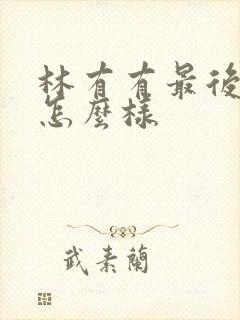 林有有最後
怎麼樣
武素蘭